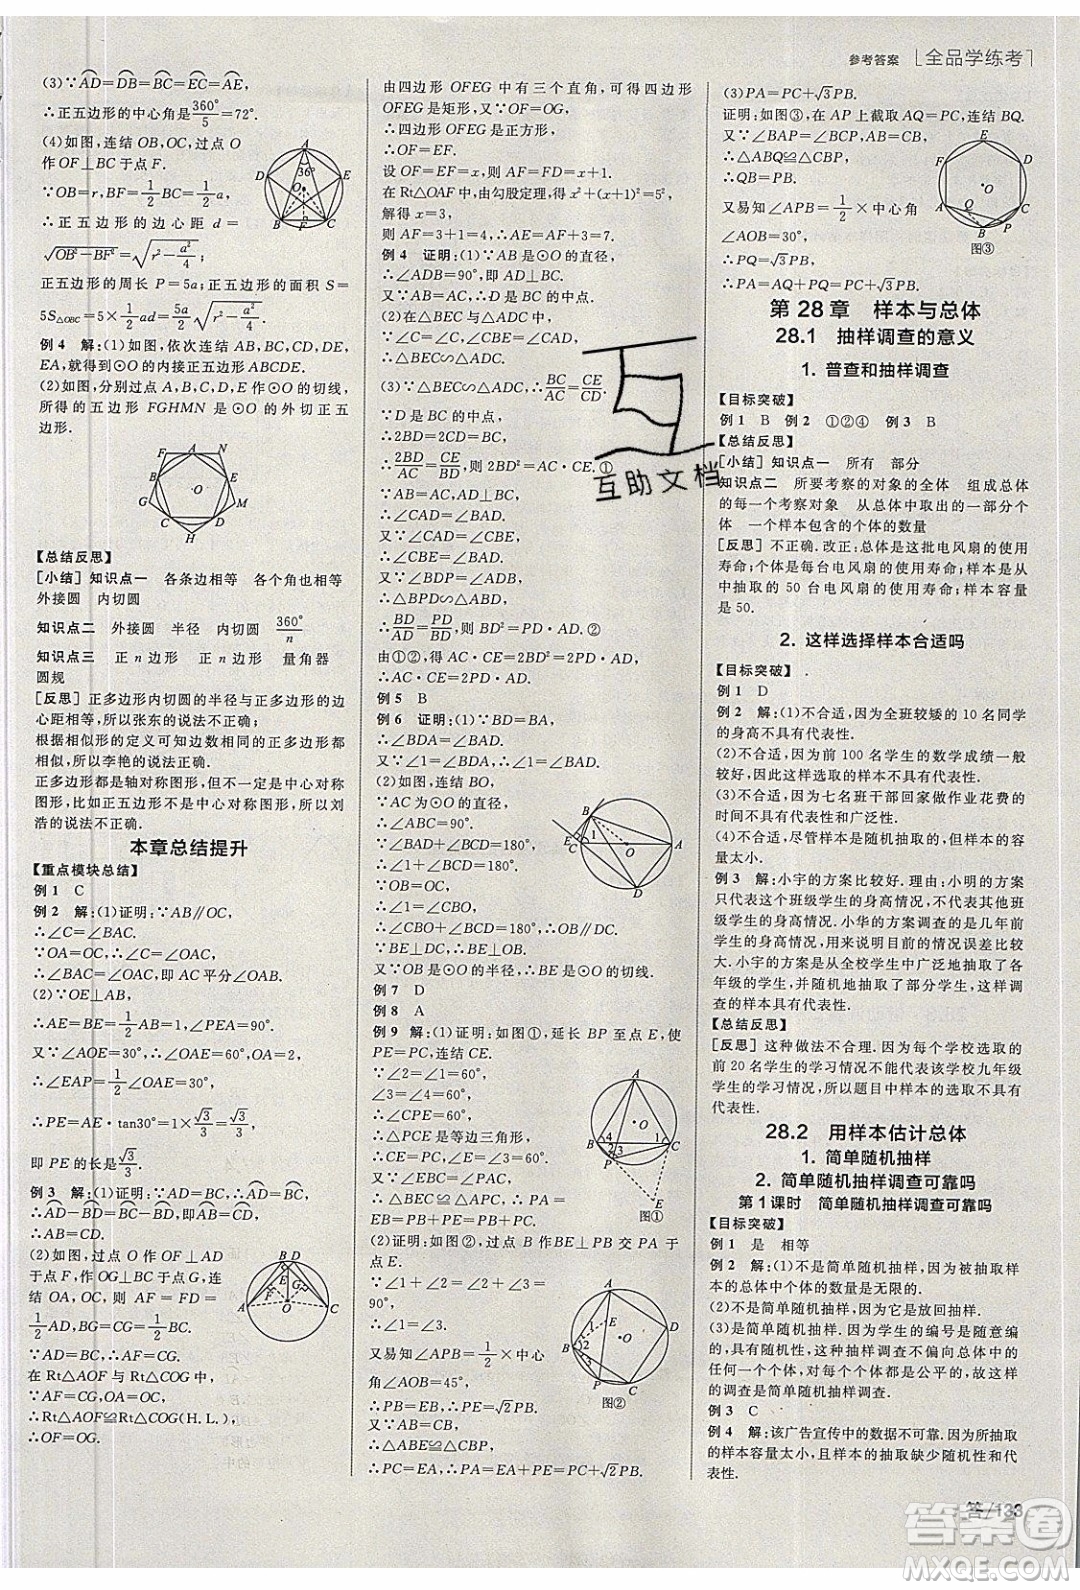 参考答案 全品学练考
(3)∵AD=DB=BC=EC=AE,
∴正五边形的中心角是360°/5=72°.
(4)如图,连结OB,OC,过点O
作OF⊥BC于点F.
∵OB=r,BF=1/2BC=1/2a,
∴正五边形的边心距 d=
√(OB²-BF²)=√(r²-a²/4),
正五边形的周长 P=5a;正五边形的面积 S=
5S△OBC=5×1/2ad=5a/2√(r²-a²/4).
例4 解:(1)如图,依次连结AB,BC,CD,DE,
EA,就得到⊙O的内接正五边形ABCDE.
(2)如图,分别过点A,B,C,D,E作⊙O的切线,
所得的五边形 FGHMN 是⊙O的外切正五
边形.
【总结反思】
[小结]知识点一 各条边相等 各个角也相等
外接圆 内切圆
知识点二 外接圆 半径 内切圆 360°/n
知识点三 正n边形 正n边形 量角器
圆规
[反思]正多边形内切圆的半径与正多边形的边
心距相等,所以张东的说法不正确;
根据相似形的定义可知边数相同的正多边形都
相似,所以李艳的说法不正确.
正多边形都是轴对称图形,但不一定是中心对称
图形,比如正五边形不是中心对称图形,所以刘
浩的说法也不正确.
本章总结提升
【重点模块总结】
例1 C
例2 解:(1)证明:∵AB∥OC,
∴∠C=∠BAC.
∵OA=OC,∴∠C=∠OAC,
∴∠BAC=∠OAC,即AC平分∠OAB.
(2)∵OE⊥AB,
∴AE=BE=1/2AB=1,∠AEO=90°.
又∵∠AOE=30°,∴∠OAE=60°,OA=2,
∴∠EAP=1/2∠OAE=30°,
∴PE=AE·tan30°=1×√3/3=√3/3,
即PE的长是√3/3.
例3 解:(1)证明:∵AD=BC,∴AD=BC,
∴AD-BD=BC-BD,即AB=CD,
∴AB=CD.
(2)如图,过点O作OF⊥AD
于点F,OG⊥BC于点G,连
结OA,OC,则 AF=FD=
1/2AD,BG=CG=1/2BC.
∵AD=BC,∴AF=CG.
在Rt△AOF与Rt△COG中,
∵AF=CG,OA=OC,
∴Rt△AOF≌Rt△COG(H.L.),
∴OF=OG.
由四边形 OFEG 中有三个直角,可得四边形
OFEG是矩形,又∵OF=OG,
∴四边形OFEG是正方形,
∴OF=EF.
设OF=EF=x,则AF=FD=x+1.
在Rt△OAF中,由勾股定理,得x²+(x+1)²=5²,
解得x=3,
则AF=3+1=4,∴AE=AF+EF=4+3=7.
例4 证明:(1)∵AB是⊙O的直径,
∴∠ADB=90°,即AD⊥BC.
又∵AB=AC,∴D是BC的中点.
(2)∵AB为⊙O的直径,∴∠AEB=90°,
∴∠CEB=∠ADC=90°.
又∵∠C=∠C,
∴△BEC∽△ADC.
(3)∵△BEC∽△ADC,∴BC/AC=CE/CD.
∵D是BC的中点,
∴2BD=2CD=BC,
∴2BD/AC=CE/BD,则2BD²=AC·CE.①
∵AB=AC,AD⊥BC,
∴∠CAD=∠BAD.
又∵∠CAD=∠CBE,
∴∠CBE=∠BAD.
又∵∠BDP=∠ADB=90°,
∴△BPD∽△ABD,
∴BD/AD=PD/BD,则BD²=PD·AD.②
由①②,得AC·CE=2BD²=2PD·AD,
∴AC·CE=2PD·AD.
例5 B
例6 证明:(1)∵BD=BA,
∴∠2=∠BAD.又∵∠1=∠2,
∴∠1=∠BAD.
(2)如图,连结BO,
∵AC为⊙O的直径,
∴∠ABC=90°.
∵∠BAD+∠BCD=180°,
∴∠1+∠BCD=180°.
∵OB=OC,
∴∠1=∠CBO,
∴∠CBO+∠BCD=180°,
∴OB∥DE.
∵BE⊥DE,∴EB⊥OB.
∵OB是⊙O的半径,∴BE是⊙O的切线.
例7 D
例8 A
例9 解:(1)证明:如图①,延长BP至点E,使
PE=PC,连结CE.
∵∠1=∠2=60°,
∠3=∠4=60°,
∴∠CPE=60°,
∴△PCE是等边三角形,
∴CE=PC,∠E=∠3=60°.
又∵∠EBC=∠PAC,
∴△BEC≌△APC,
∴PA=BE=PB+PC.
图①
(2)证明:如图②,过点B作BE⊥PB交PA于
点E.
∵∠1+∠2=∠2+∠3=90°,
∴∠1=∠3.
又易知∠APB=1/2×中心
角∠AOB=45°,
∴BP=BE,∴PE=√2PB.
又∵AB=BC,
∴△ABE≌△CBP,
∴PC=AE,∴PA=AE+PE=PC+√2PB.
图②
(3)PA=PC+√3PB.
证明:如图③,在AP上截取AQ=PC,连结BQ.
又∵∠BAP=∠BCP,AB=BC,
∴△ABQ≌△CBP,
∴QB=PB.
又易知∠APB=1/2×中心角
∠AOB=30°,
∴PQ=√3PB,
∴PA=AQ+PQ=PC+√3PB.
图③
第28章 样本与总体
28.1 抽样调查的意义
1. 普查和抽样调查
【目标突破】
例1 B 例2 ①②④ 例3 B
【总结反思】
[小结]知识点一 所有 部分
知识点二 所要考察的对象的全体 组成总体
的每一个考察对象 从总体中抽取的一部分个
体 一个样本包含的个体的数量
[反思]不正确.改正:总体是这批电风扇的使用
寿命;个体是每台电风扇的使用寿命;样本是从
中抽取的50台电风扇的使用寿命;样本容量
是50.
2. 这样选择样本合适吗
【目标突破】
例1 D
例2 解:(1)不合适,因为全班较矮的10名同学
的身高不具有代表性.
(2)不合适,因为前100名学生的数学成绩一般
较好,因此这样选取的样本不具有代表性.
(3)不合适,因为七名班干部回家做作业花费的
时间不具有代表性和广泛性.
(4)不合适,尽管样本是随机抽取的,但样本的容
量太小.
例3 解:小宇的方案比较好.理由:小明的方案
只代表这个班级学生的身高情况,不代表其他班
级学生的身高情况.小华的方案调查的是几年前
学生的身高情况,与目前的情况误差比较
大.小宇的方案是从全校学生中广泛地抽取了各
年级的学生,并随机地抽取了部分学生,这样调
查的样本具有代表性.
【总结反思】
[反思]这种做法不合理.因为每个学校九年级
前20名学生的学习情况不能代表该学校九年级
学生的学习情况,所以题目中样本的选取不具有
代表性.
28.2 用样本估计总体
1. 简单随机抽样
2. 简单随机抽样调查可靠吗
第1课时 简单随机抽样调查可靠吗
【目标突破】
例1 是 相等
例2 解:(1)不是简单随机抽样,因为被抽取样
本的总体中个体的数量是无限的.
(2)不是简单随机抽样,因为它是放回抽样.
(3)是简单随机抽样.因为学生的编号是随意编
的,具有随机性,这样的抽样不偏向总体中的
任何一个个体,对每个个体都是公平的,所以这
样的调查是简单随机抽样调查.
例3 C
例4 解:该广告宣传中的数据不可靠.因所抽取
的样本容量太小,且样本的抽取缺少随机性和代
表性.
互助文档
答/133
答案圈
MXQE.COM